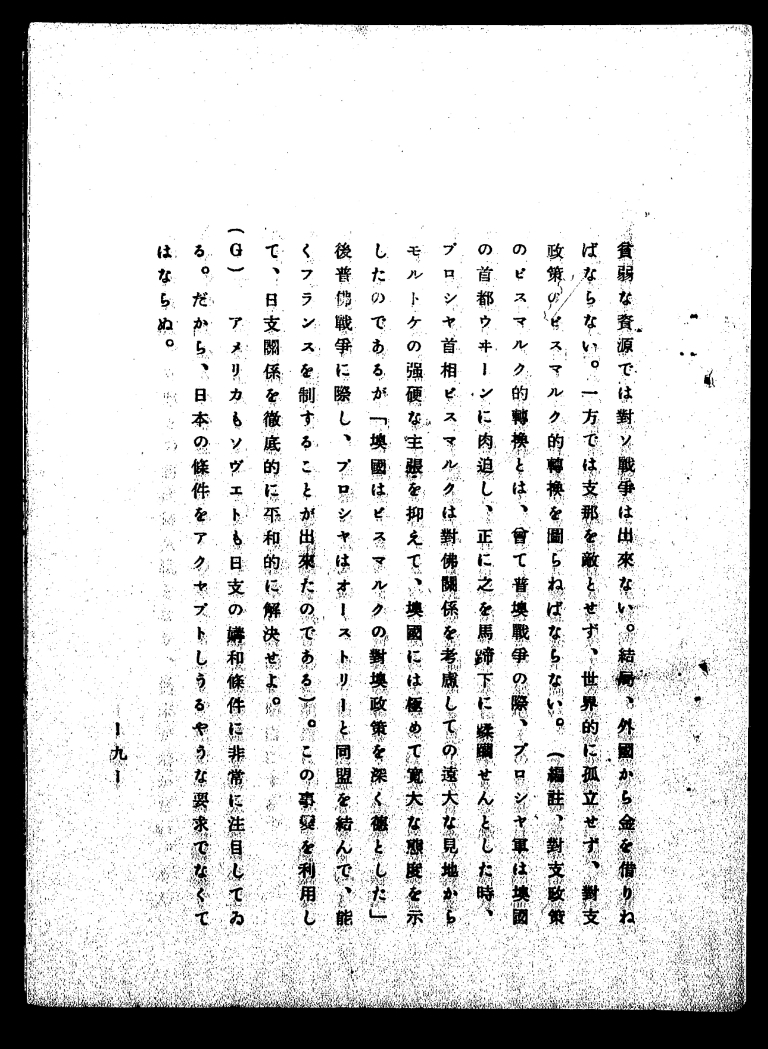 貧弱な資源では對ソ戰爭は出來ない。結局、外國から金を借りね
ばならない。一方では支那を敵とせず、世界的に孤立せず、對支
政策のビスマルク的轉換を圖らねばならない。（編註、對支政策
のビスマルク的轉換とは、曾て普墺戰爭の際、プロシヤ軍は墺國
の首都ウヰーンに肉迫し、正に之を馬蹄下に蹂躪せんとした時、
プロシヤ首相ビスマルクは對佛關係を考慮しての遠大な見地から
モルトケの强硬な主張を抑えて、墺國には極めて寬大な態度を示
したのであるが「墺國はビスマルクの對墺政策を深く德とした」
後普佛戰爭に際し、プロシヤはオーストリーと同盟を結んで、能
くフランスを制することが出來たのである）。この事變を利用し
て、日支關係を徹底的に平和的に解決せよ。
(G)　アメリカもソヴエトも日支の媾和條件に非常に注目してゐ
る。だから、日本の條件をアクセプトしうるやうな要求でなくて
はならぬ。
ー九ー